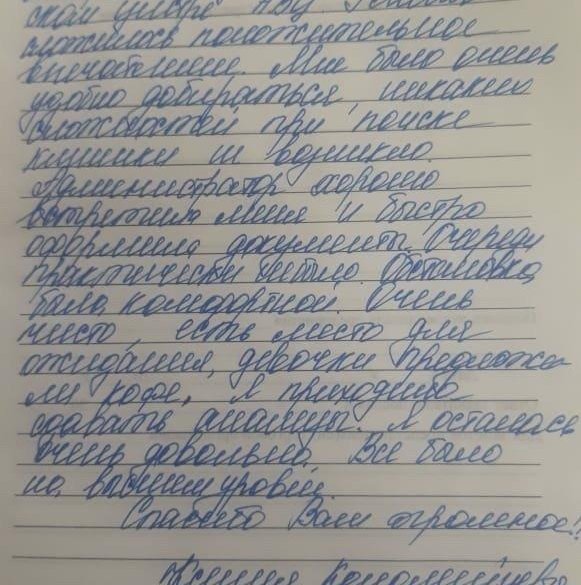 ском центре
сложилось положительное
впечатление. Мне было очень
удобно добираться, никаких
сложностей при поиске
клиники не возникло.
Администратор хорошо
встретила меня и быстро
оформила документы. Очереди
практически не было. Обстановка
была комфортной. Очень
чисто, есть место для
ожидания, девочки предложи
ли кофе. Я приходила
сдавать анализы. Я осталась
очень довольна. Все было
на высшем уровне.
Спасибо Вам огромное!
Ксения